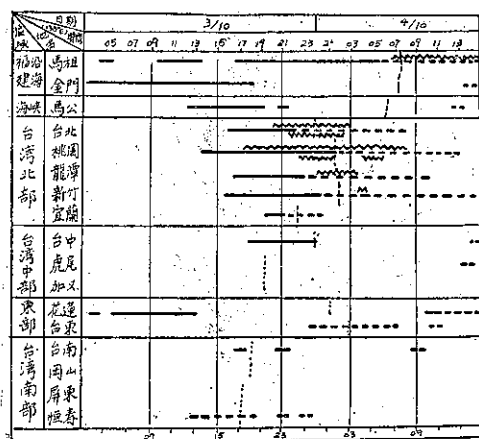 日期
3/10
4/10
区域
05 07 09 11 13 15 17 19 21 23 03 05 07 09 11 13
福建沿海
馬祖
金門
海峽
馬公
台湾北部
台北
桃園
龍潭
新竹
宜蘭
台湾中部
台中
虎尾
加义
東部
花蓮
台東
台湾南部
台南
岡山
屏東
恒春
07 15 23 03 09